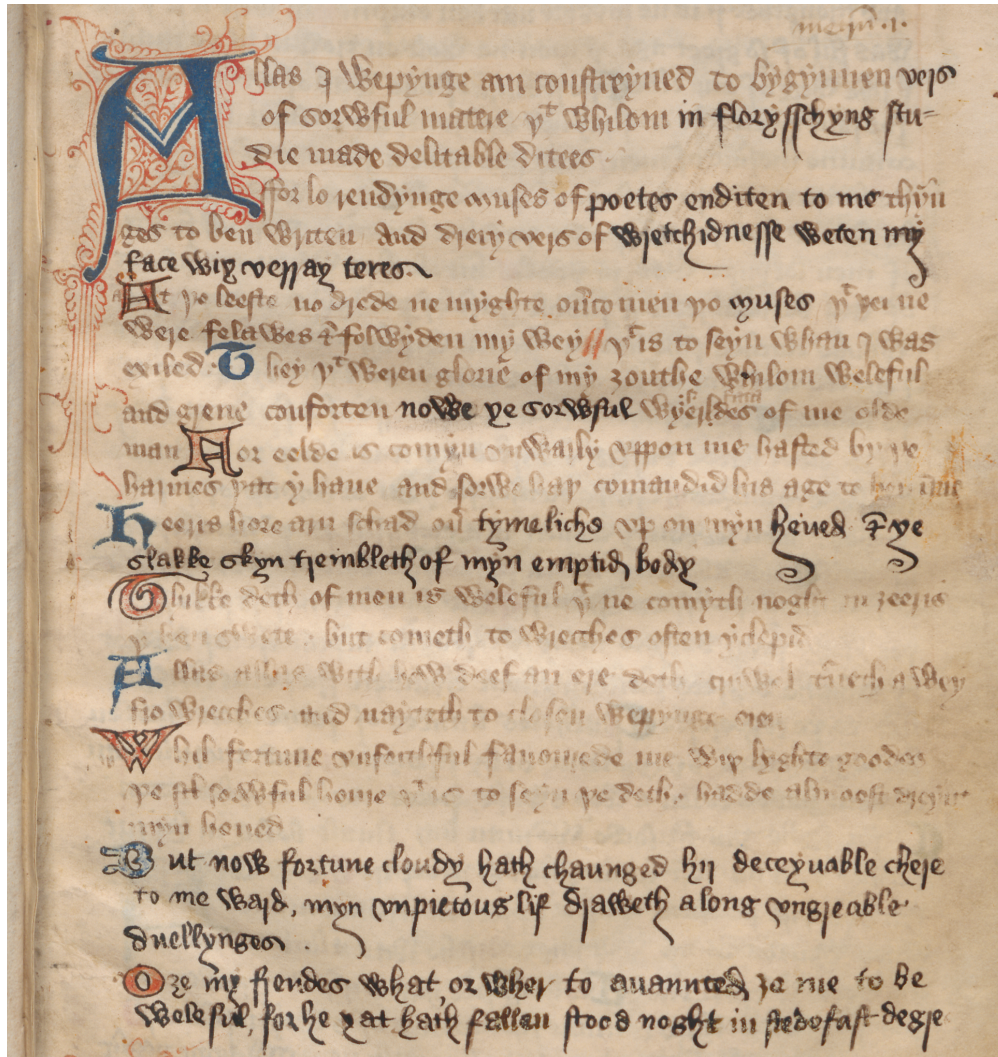 metrū .1.
Allas I wepynge am constreyned to bygynnen vers
of sorwful matere yͭ whilom in florysschyng stu=
die made delitable ditees
ffor lo rendynge muses of poetes enditen to me thyn̄
ges to ben writen and drery vers of wretchidnesse weten my
face wiþ verray teres
At þe leeste no drede ne myghte ou̓comen þo muses yͭ þei ne
were felawes & folwyden my wey // yͭ is to seyn whan I was
exiled. They yͭ weren glorie of my ȝouthe whilom weleful
and grene conforten nowe þe sorwful wyerldes of me olde
man For eelde is comyn vnwarly vppon me hasted by þe
harmes þat y haue and sorwe haþ comaūdid his age to
Heeris hore arn schad ou̓ tymeliche vp on myn heued & þe
slakke skyn trembleth of myn emptid body
Thikke deth of men is weleful yͭ ne comyth noght in ȝeeris
yͭ ben swete . but cometh to wrecches often yclepid
Allas allas with how deef an ere deth cruwel t̓neth a wey
fro wrecches and nayteth to closen wepynge eien
Whil fortune vnfeithful fauorede me wiþ lyghte goodes
þe sorwful houre yͭ is to seyn þe deth . hadde almoost dreynt
myn heued
But now fortune cloudy hath chaunged hir deceyuable chere
to me ward, myn vnpietous lif draweth a long vngreable
duellynges .
O ȝe my frendes what, or wher to auaunted ȝe me to be
weleful, for he þat hath fallen stood noght in stedefast degre